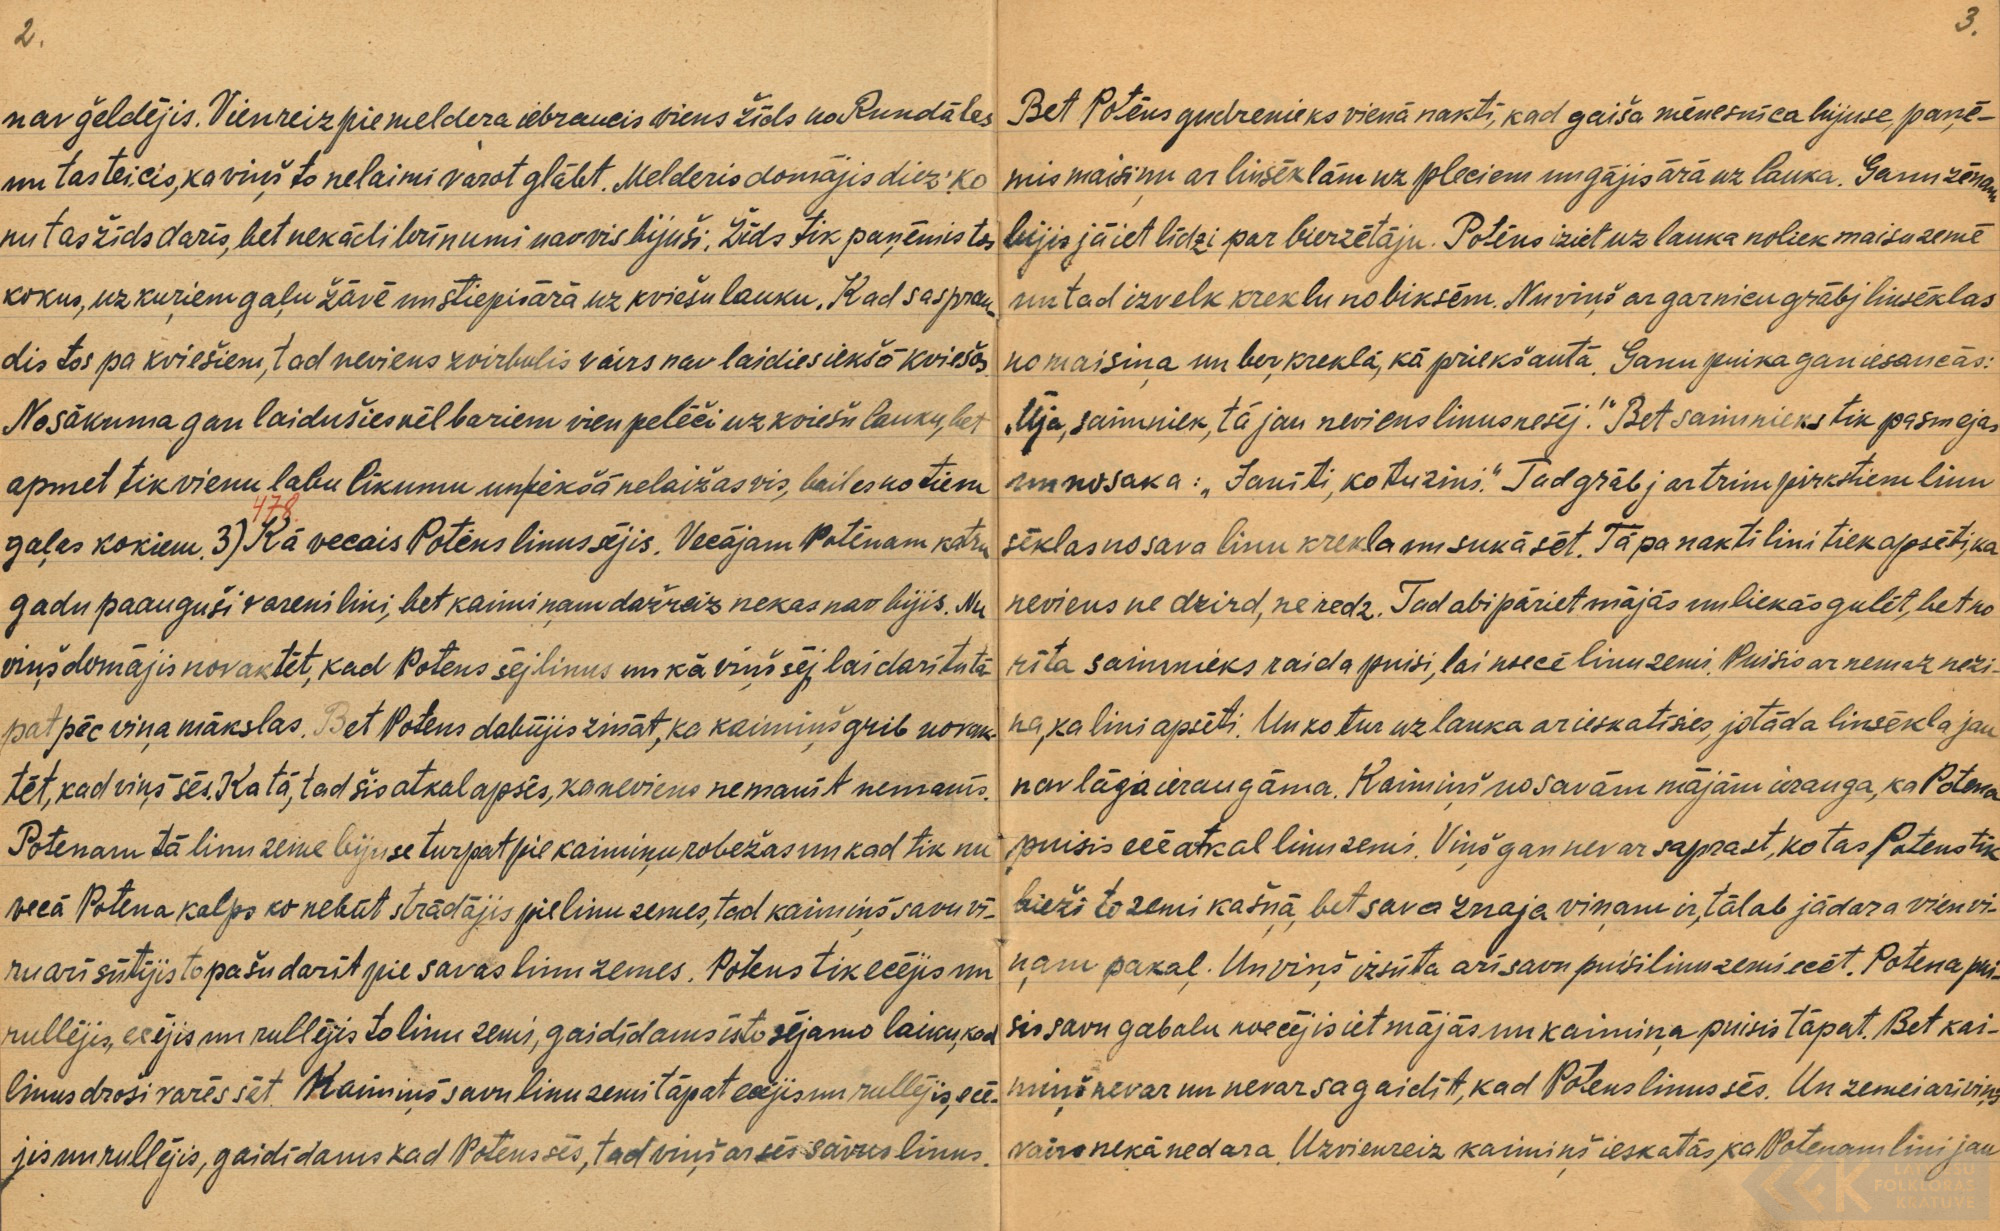 2.
nav ģeldējis. Vienreiz pie meldera iebraucis viens žīds no Rundāles
un tas teicis, ka viņš to nelaimi varot glābt. Melderis domājis diez' ko
nu tas žīds darīs, bet nekādi brīnumi nav vis bijuši. Žīds tik paņēmis tos
kokus, uz kuŗiem gaļu žāvē un stiepis ārā uz kviešu lauku. Kad sasprau-
dis tos pa kviešiem, tad neviens zvirbulis vairs nav laidies iekšā kviešos.
No sākuma gan laidušies vēl bariem vien pelēči uz kviešu lauku, bet
apmet tik vienu labu līkumu un iekšā nelaižas vis, bail es no tiem
gaļas kokiem. 3) Kā vecais Potēns linus sējis. Vecājam Potēnam katru
478
gadu paauguši vareni lini, bet kaimiņam dažreiz nekas nav bijis. Nu
viņš domājis novaktēt, kad Potens sēj linus un kā viņš sēj, lai darītu tā-
pat pēc viņa mākslas. Bet Potens dabūjis zināt, ka kaimiņš grib novak-
tēt, kad viņš sēs. Ka tā, tad šis atkal apsēs, ka neviens nemanīt nemanīs.
Potenam tā linu zeme bijuse turpat pie kaimiņu robežas un kad tik nu
vecā Potena kalps ko nebūt strādājis pie linu zemes, tad kaimiņš savu vī-
ru arī sūtījis to pašu darīt pie savas linu zemes. Potens tik ecējis un
rullējis, ecējis un rullējis to linu zemi, gaidīdams īsto sējamo laiku, kad
linus droši varēs sēt. Kaimiņš savu linu zemi tāpat ecējis un rullējis, ecē-
jis un rullējis, gaidīdams kad Potens sēs, tad viņš ar sēs savus linus.
3.
Bet Potēns gudrenieks vienā naktī, kad gaiša mēnesnīca bijuse, paņē-
mis maisiņu ar linsēklām uz pleciem un gājis ārā uz lauka. Ganu zēnam
bijis jāiet līdzi par bierzētāju. Potēns iziet uz lauka noliek maisu zemē
un tad izvelk kreklu no biksēm. Nu viņš ar garnicu grābj linsēklas
no maisiņa un beŗ kreklā, kā priekšautā. Ganu puika gan iesaucās:
„Ūja, saimniek, tā jau neviens linus nesēj!" Bet saimnieks tik pasmejas
un nosaka: „Jauīti, ko tu zini." Tad grābj ar trim pirkstiem linu
sēklas no sava linu krekla un suka sēt. Tā pa nakti lini tiek apsēti, ka
neviens ne dzird, ne redz. Tad abi pāriet mājās un liekās gulēt, bet no
rīta saimnieks raida puisi, lai noecē linu zemi. Puisis ar nemaz nezi-
na, ka lini apsēti. Un ko tur uz lauka ar ieskatīsies, jo tāda linsēkla jau
nav lāgā ieraugāma. Kaimiņš no savām mājām ierauga, ka Potena
puisis ecē atkal linu zemi. Viņš gan nevar saprast, ko tas Potens tik
bieži to zemi kašņā, bet sava znaja viņam ir, tālab jādara vien vi-
ņam pakaļ. Un viņš izsūta arī savu puisi linu zemi ecēt. Potena pui-
sis savu gabalu noecējis iet mājās un kaimiņa puisis tāpat. Bet kai-
miņš nevar un nevar sagaidīt, kad Potens linus sēs. Un zemei arī viņš
vairs nekā nedara. Uz vienreiz kaimiņš ieskatās, ka Potenam lini jau
LATVIEŠU
FOLKLORAS
KRĀTUVE